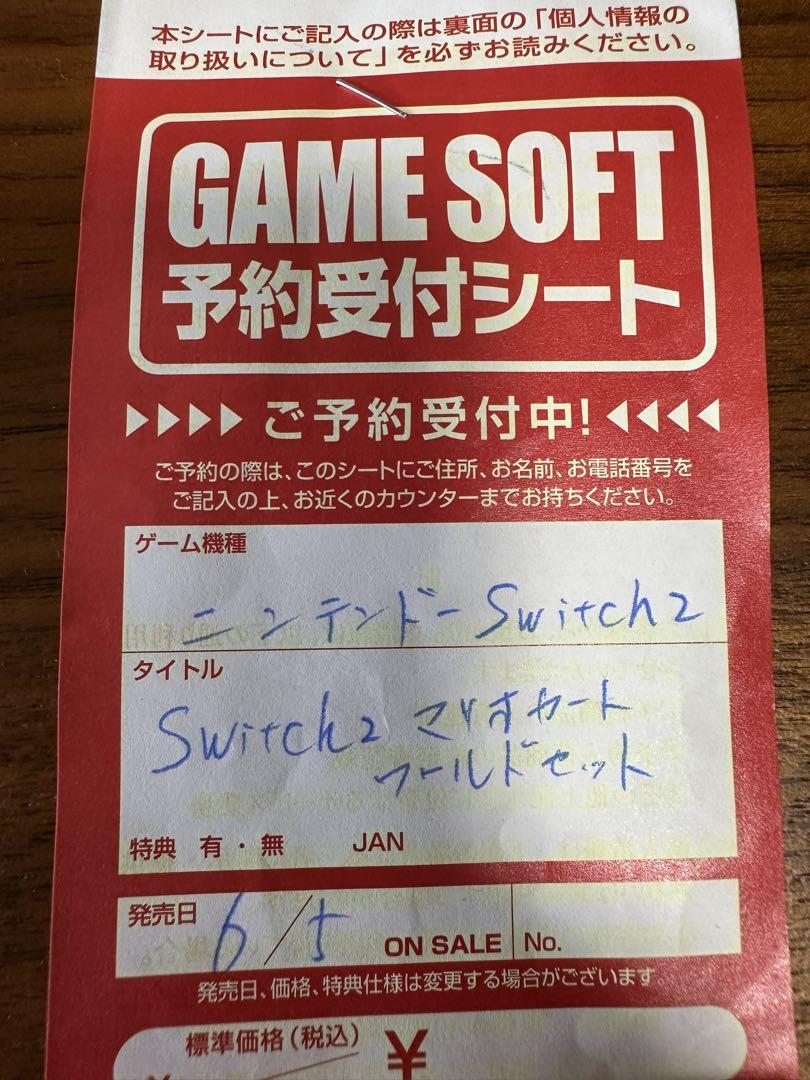 本シートにご記入の際は裏面の「個人情報の
取り扱いについて」を必ずお読みください。
GAME SOFT
予約受付シート
ご予約受付中!
ご予約の際は、このシートにご住所、お名前、お電話番号を
ご記入の上、お近くのカウンターまでお持ちください。
ゲーム機種
ニンテンドーSwitch2
タイトル
Switch2 マリオカート
ワールドセット
特典 有・無 JAN
発売日 6/5 ON SALE No.
発売日、価格、特典仕様は変更する場合がございます
標準価格(税込) ¥